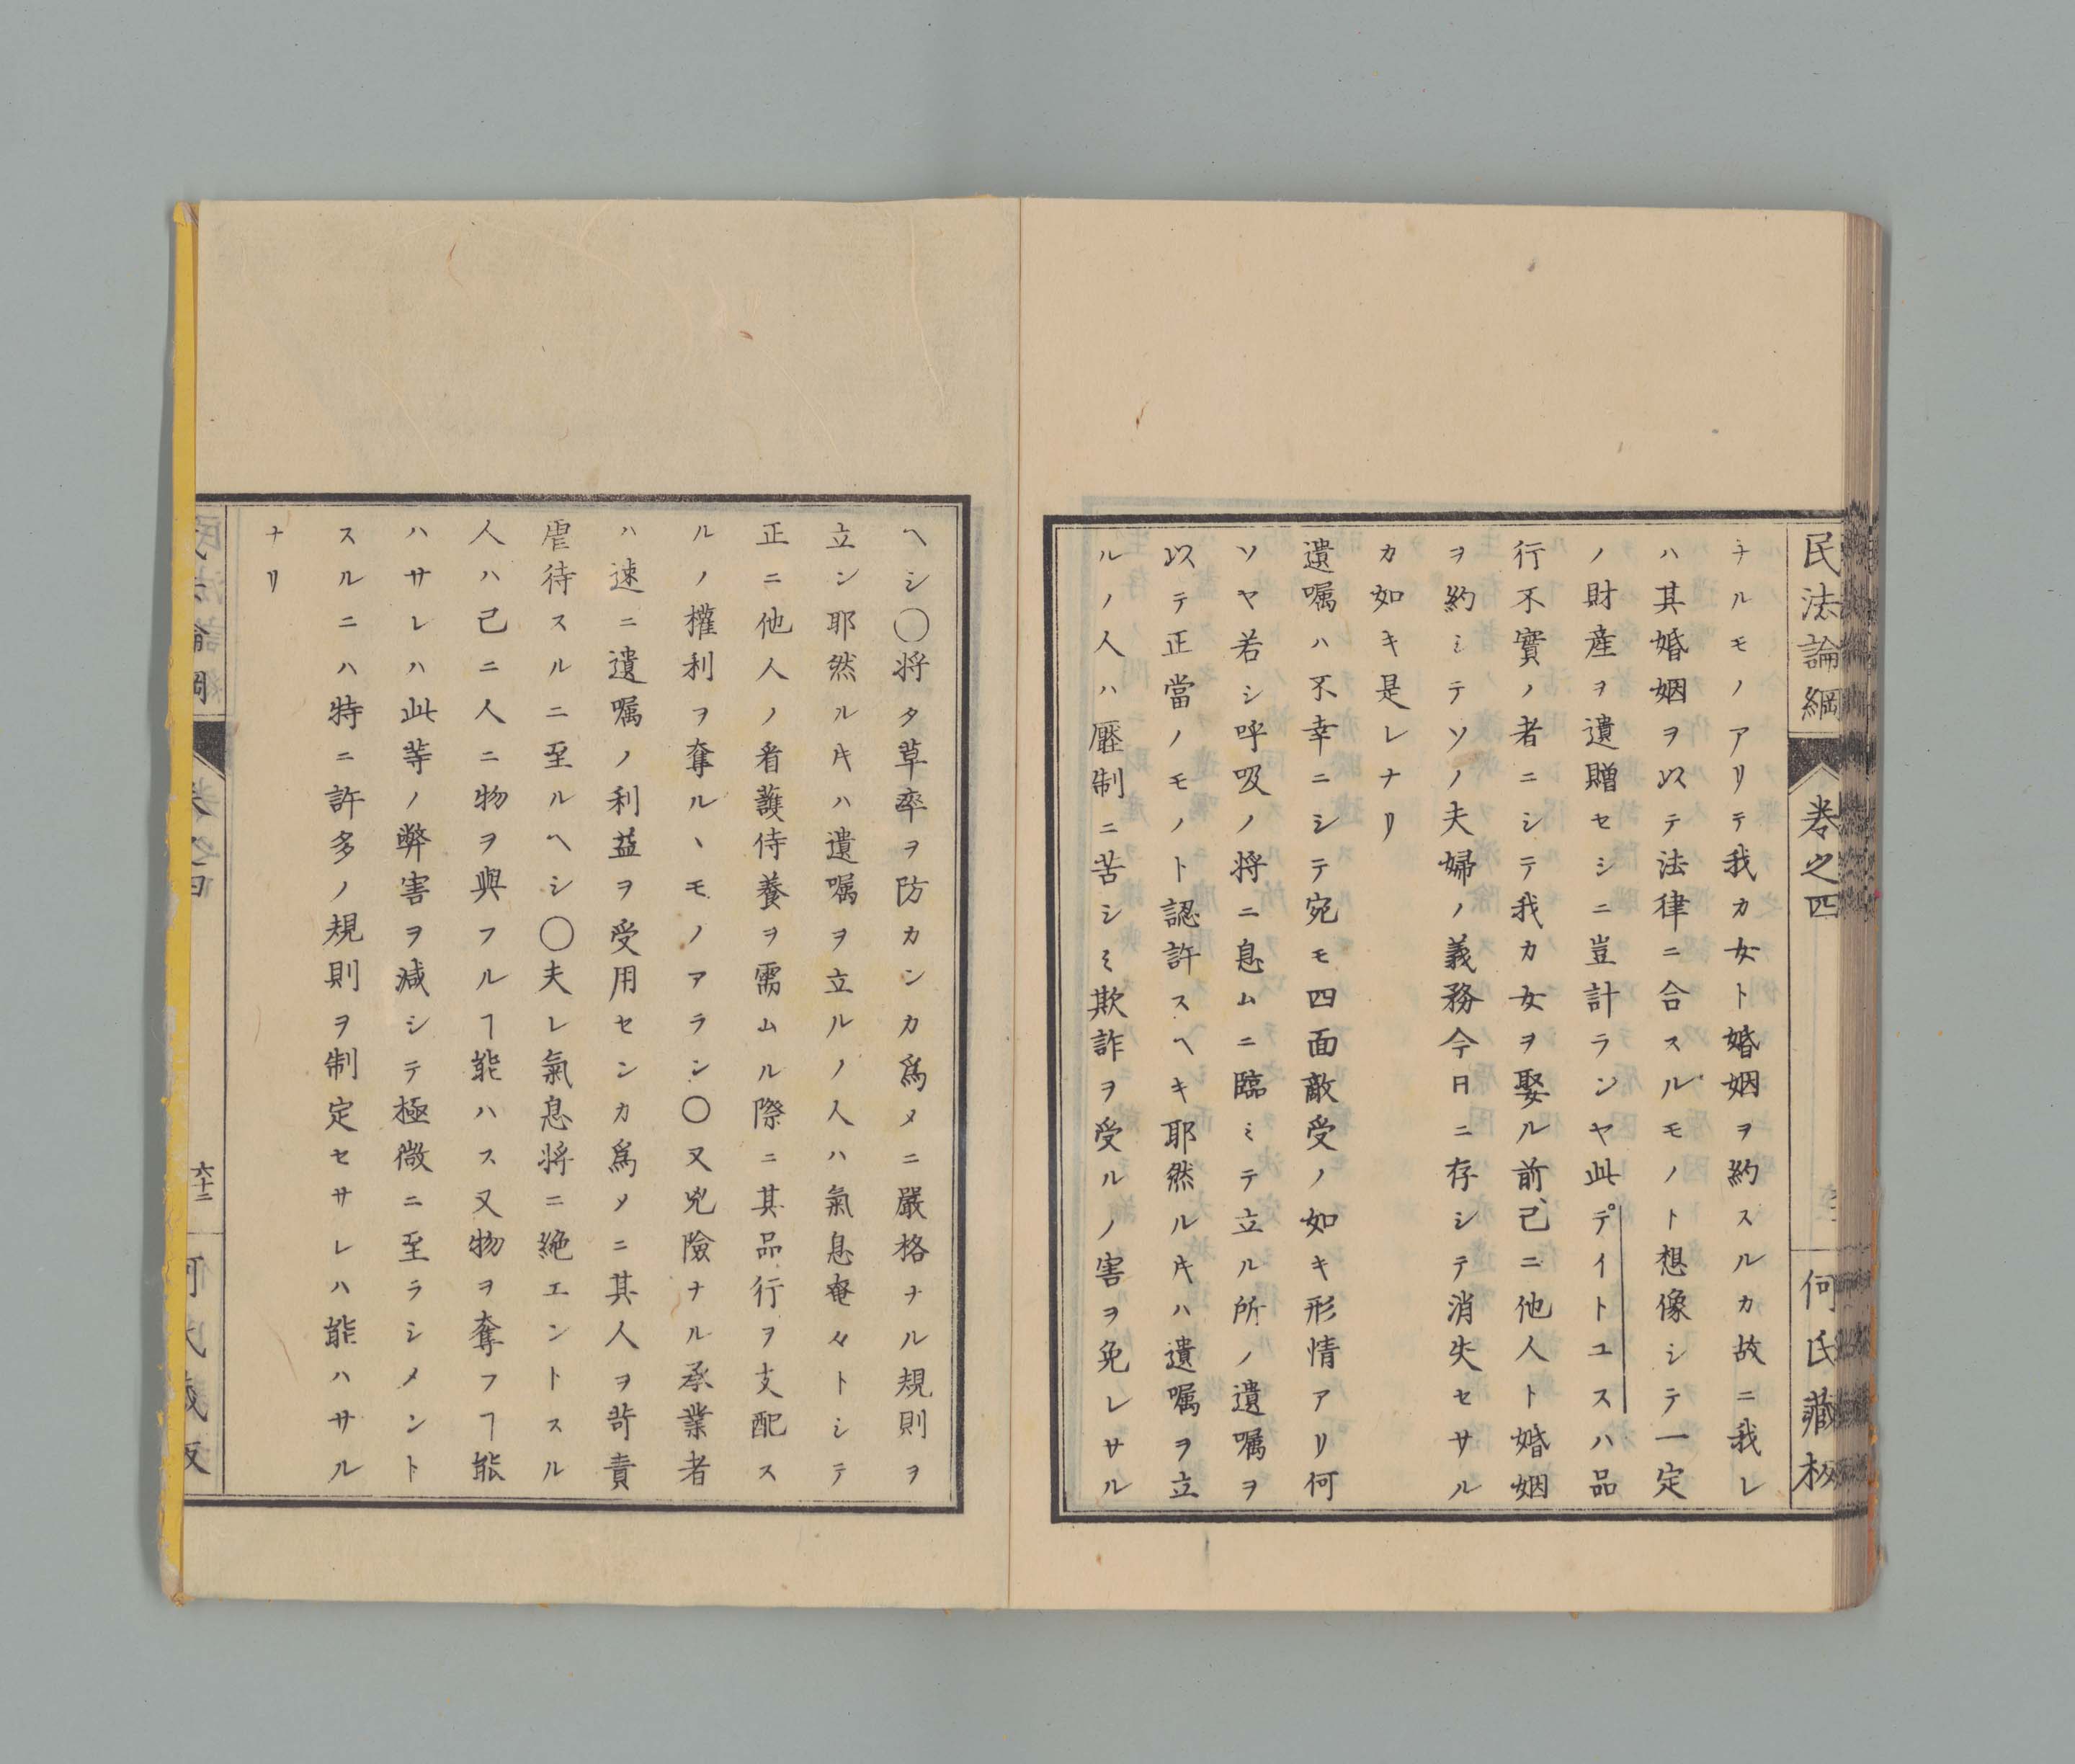 民法論綱 卷之四 何氏藏板
ナルモノアリテ我カ女ト婚姻ヲ約スルカ故ニ我レ
ハ其婚姻ヲ以テ法律ニ合スルモノト想像シテ一定
ノ財産ヲ遺贈セシニ豈計ランヤ此デイトユスハ品
行不實ノ者ニシテ我カ女ヲ娶ル前、己ニ他人ト婚姻
ヲ約ミテソノ夫婦ノ義務今日ニ存シテ消失セサル
カ如キ是レナリ
遺嘱ハ不幸ニシテ宛モ四面敵受ノ如キ形情アリ何
ソヤ若シ呼吸ノ将ニ息ムニ臨ミテ立ル所ノ遺嘱ヲ
以テ正當ノモノト認許スヘキ耶然ルキハ遺嘱ヲ立
ルノ人ハ壓制ニ苦シミ欺詐ヲ受ルノ害ヲ免レサル
ヘシ〇将タ草率ヲ防カンカ爲メニ嚴格ナル規則ヲ
立ン耶然ルキハ遺嘱ヲ立ルノ人ハ氣息奄々トシテ
正ニ他人ノ看護侍養ヲ需ムル際ニ其品行ヲ支配ス
ルノ權利ヲ奪ルヽモノアラン〇又兇險ナル承業者
ハ速ニ遺嘱ノ利益ヲ受用センカ爲メニ其人ヲ苛責
虐待スルニ至ルヘシ〇夫レ氣息将ニ絶エントスル
人ハ己ニ人ニ物ヲ與フルヿ能ハス又物ヲ奪フヿ能
ハサレハ此等ノ弊害ヲ減シテ極微ニ至ラシメント
スルニハ特ニ許多ノ規則ヲ制定セサレハ能ハサル
ナリ
六十二